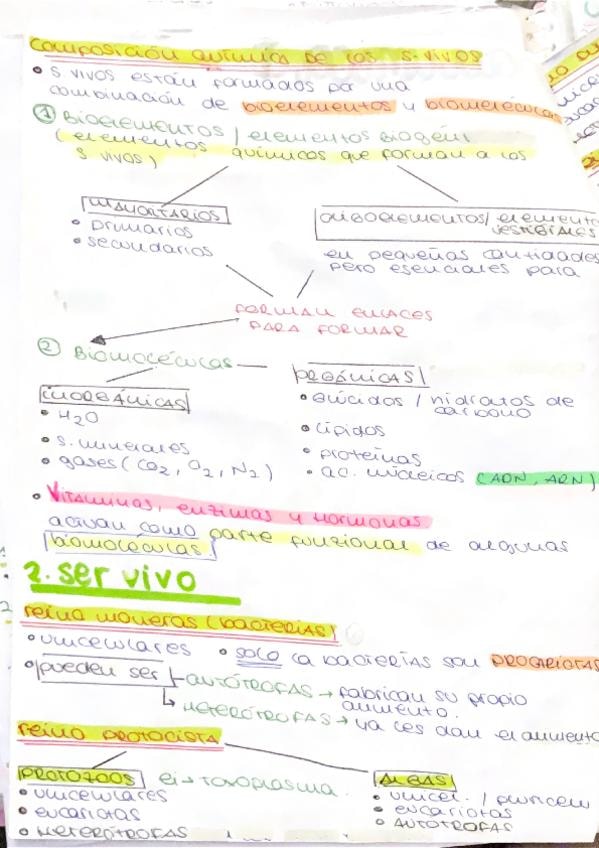 COMPOSICIÓN QUÍMICA DE LOS S.VIVOS
• S. VIVOS están formados por una
combinación de bioelementos y biomoléculas
① BIOELEMENTOS / elementos biogéni
(elementos químicos que forman a los
S VIVOS)
MAYORITARIOS
• primarios
• secundarios
OLIGOELEMENTOS/ elemento
VESTIGIALES
en pequeñas cantidades
pero esenciales para
FORMAN ENLACES
PARA FORMAR
② Biomoléculas
INORGÁNICAS
• H2O
• S. minerales
• gases (CO2, O2, N2)
ORGÁNICAS
• Glúcidos / hidratos de
carbono
• Lípidos
• proteínas
• ac. nucleicos (ADN, ARN)
• Vitaminas, enzimas y Hormonas
actuan como parte funzional de algunas
biomoléculas
2. ser vivo
reino moneras (bacterias)
• unicelulares
• solo la bacterias son PROCARIOTAS
• pueden ser
AUTÓTROFAS → fabrican su propio
alimento.
HETERÓTROFAS → ya les dan el alimento
reino PROTOCISTA
PROTOZOOS
ej → toxoplasma.
• unicelulares
• eucariotas
• HETERÓTROFAS
ALGAS
• unicel. / pluricelu
• eucariotas
• AUTOTROFAS